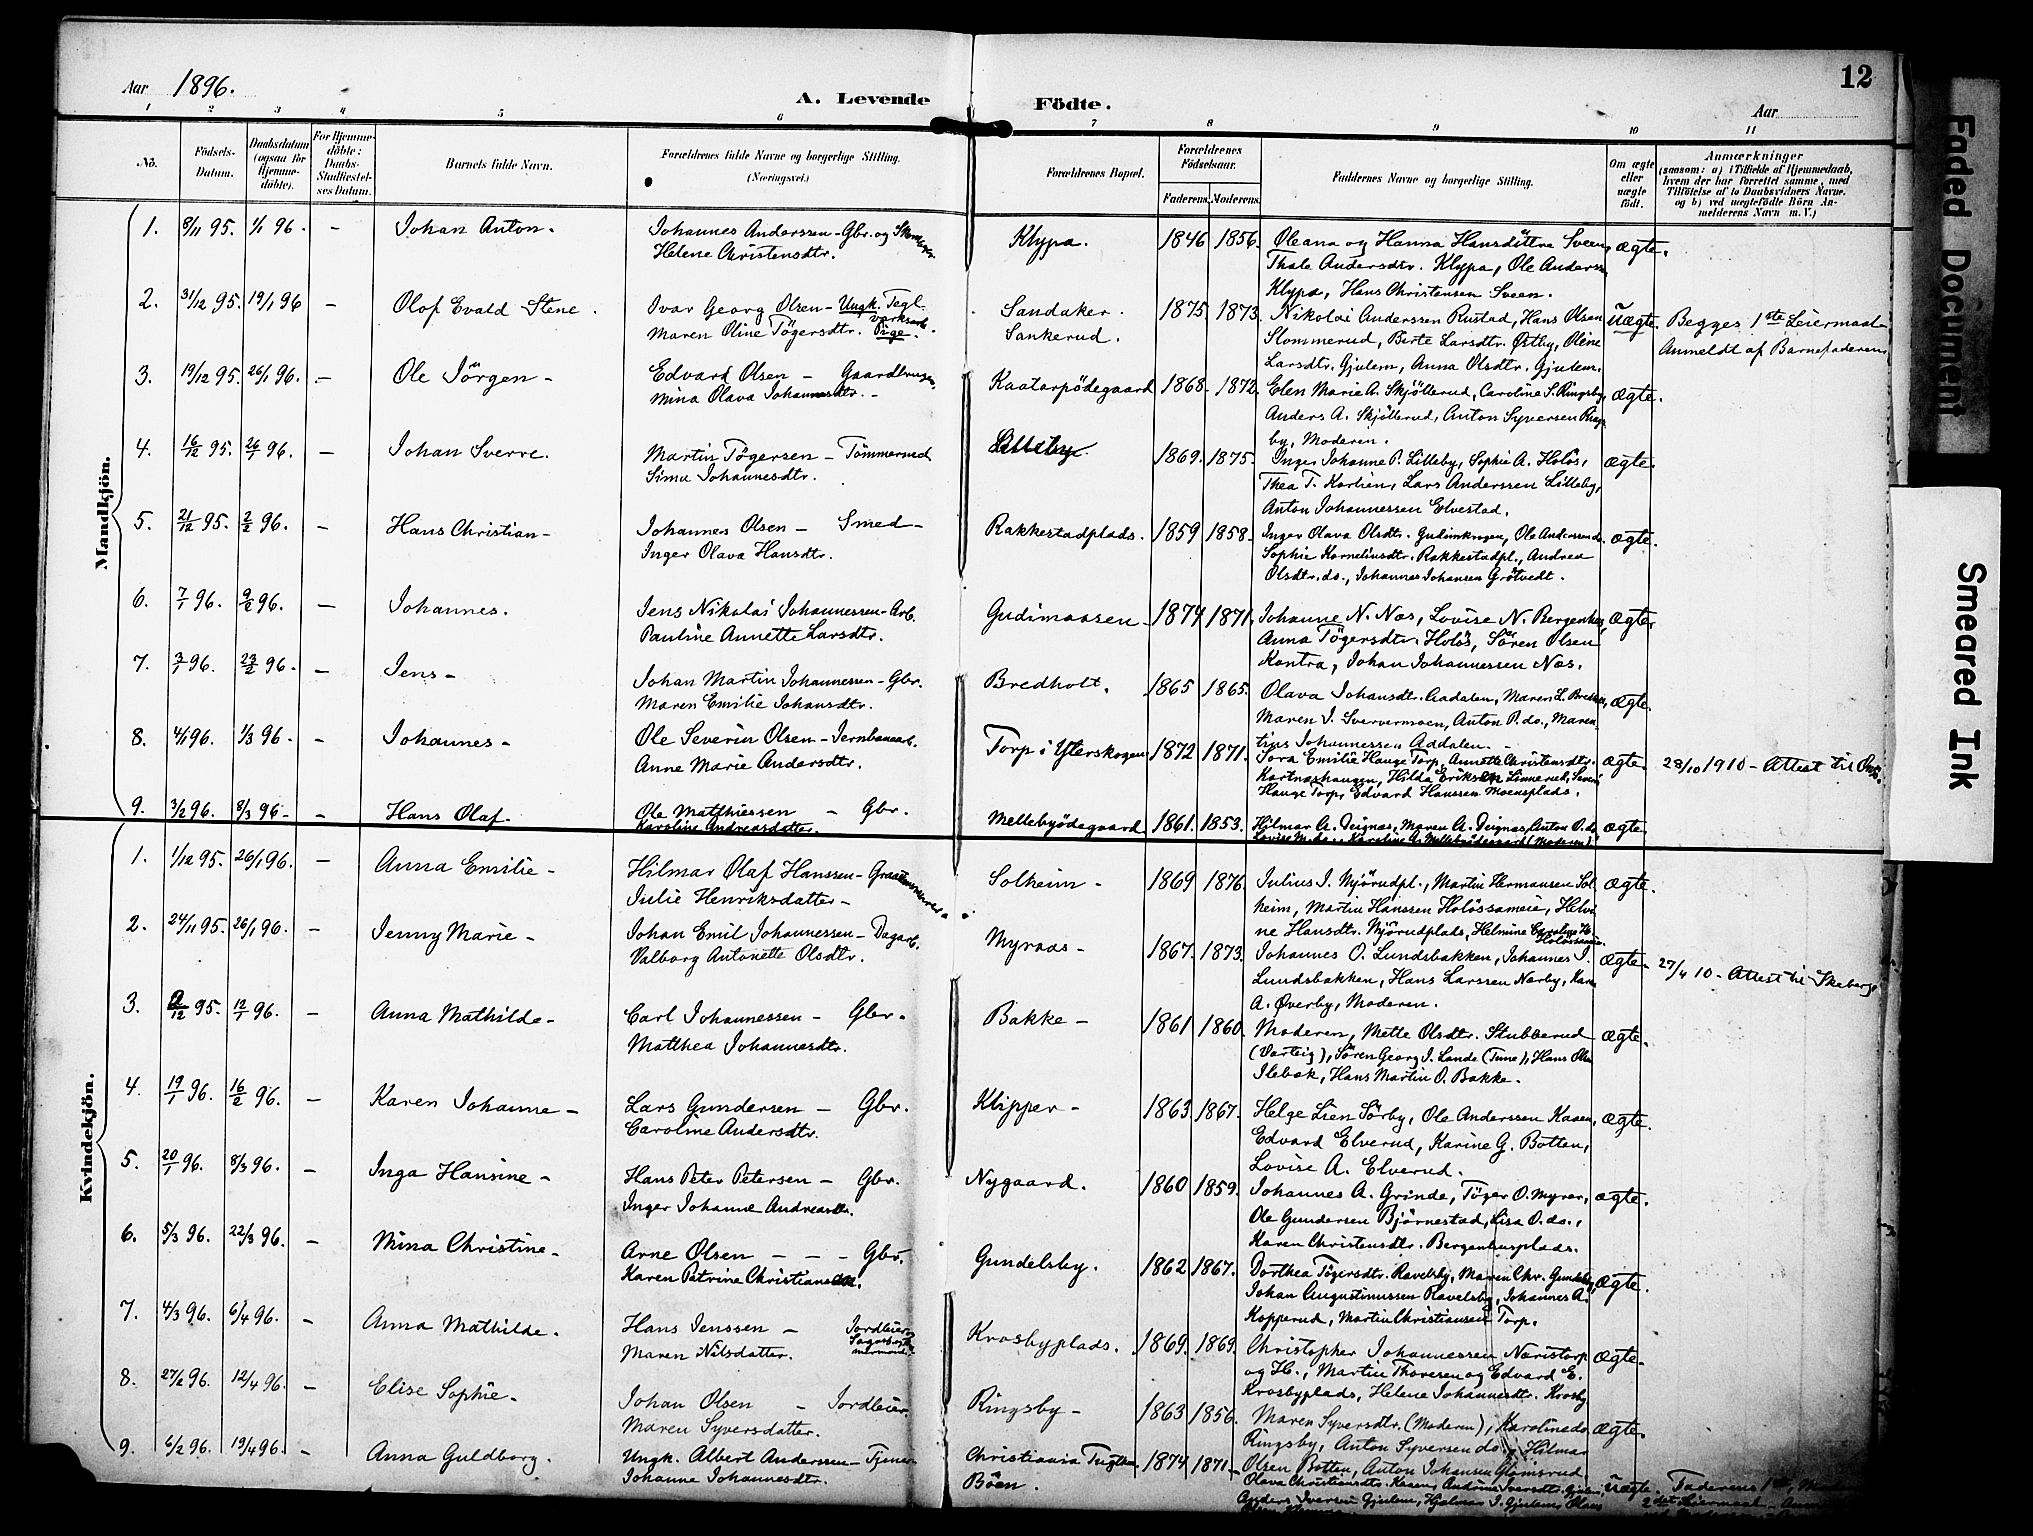 12
Aar 1896.
A. Levende Födte.
Aar
1 2 3 4 5 6 7 8 9 10 11
No.
Födsels-Datum.
Daabsdatum (ogsaa for Hjemmedöbte).
For Hjemmedöbte: Daabs-Stadfæstelses Datum.
Barnets fulde Navn.
Forældrenes fulde Navne og borgerlige Stilling.
(Næringsvei.)
Forældrenes Bopæl.
Forældrenes Födselsaar.
Faderens. Moderens.
Faddernes Navne og borgerlige Stilling.
Om ægte eller uægte födt.
Anmærkninger
(saasom: a) i Tilfælde af Hjemmedaab, hvem der har forrettet samme, med Tilföielse af to Daabsvidners Navne. og b) ved uægtefödte Börn Anmelderens Navn m. V.)
Mandkjön.
1. 8/11 95. 1/1 96. - Johan Anton. Johannes Anderssen - Gbr. og
Helene Christensdtr. Klypa. 1846 1856. Oleana og Hanna Hansdöttre Sveen, ægte.
Thale Andersdtr. Klypa, Ole Anders
Klypa, Hans Christensen Sveen.
2. 31/12 95. 19/1 96 - Olof Evald Stene. Ivar Georg Olsen - Ungk. Tegl
værksarb.
Maren Oline Tögersdtr. Pige. Sandaker. Sankerud. 1875. 1873. Nikolai Anderssen Rustad, Hans Olsen uægte. Begges 1ste Leiermaal
Slommerud, Birte Larsdtr. Østby, Oline Anmeldt af Barnefaderen
Larsdtr. Gjulem, Anna Olsdtr. Gjulem.
3. 19/12 95. 26/1 96. - Ole Jörgen - Edvard Olsen - Gaardbruger
Mina Olava Johannesdtr. - Kaatorpödegaard 1868. 1872. Elen Marie A. Skjöllerud, Caroline S. Ringsby, ægte.
Anders A. Skjöllerud, Anton Syversen Rings
by, Moderen.
4. 16/12 95. 26/1 96. - Johan Sverre. Martin Tögersen - Tömmermd
Sima Johannesdtr. Lilleby. 1869. 1875. Inger Johanne P. Lilleby, Sophie A. Holös, ægte.
Thea T. Kortien, Lars Anderssen Lilleby,
Anton Johannessen Elvestad.
5. 21/12 95. 2/2 96. - Hans Christian - Johannes Olsen - Smed -
Inger Olava Hansdtr. Rakkestadplads. 1859 1858. Inger Olava Olsdtr. Gudimkrogen, Ole Anderssen do. ægte.
Sophie Korneliusdtr. Rakkestadpl., Andrea
Olsdtr. do., Johannes Johansen Grötvedt.
6. 7/1 96. 9/2 96. - Johannes. Jens Nikolai Johannessen - Arb.
Pauline Annette Larsdtr. Gudimaasen - 1874 1871. Johanne N. Næs, Lovise N. Bergenhus, ægte.
Anna Tögersdtr. Holös, Sören Olsen
Kontra, Johan Johannessen Næs.
7. 3/1 96. 23/2 96. - Jens - Johan Martin Johannessen - Gbr.
Maren Emilie Johansdtr. Bredholt. 1865 1865. Olava Johansdtr. Aadalen, Maren L. Bredholt, ægte.
Maren J. Sververmoen, Anton P. do., Maren
tius Johannessen Aadalen.
8. 4/1 96. 1/3 96. - Johannes - Ole Severin Olsen - Jernbanearb.
Anne Marie Andersdtr. Torp i Ytterskogen 1872 1871. Tora Emilie Hauge Torp, Annette Christensdtr. ægte. 28/10 1910 - Attest til
Kortnæshaugen, Hilda Eriksen Linnerud, Severin
Hauge Torp, Edvard Hanssen Moensplads.
9. 3/2 96. 8/3 96 - - Hans Olaf. Ole Matthiessen - Gbr.
Karoline Andreasdatter. Mellebyödegaard 1861. 1853. Hilmar A. Deignæs, Maren A. Deignæs, Anton O. do. ægte.
Lovise M. do., Karoline A. Mellebyödegaard (Moderen).
Kvindekjön.
1. 1/12 95. 26/1 96. - Anna Emilie - Hilmar Olaf Hanssen -
Julie Henriksdatter - Solheim - 1869 1876. Julius J. Mjörudpl., Martin Hermansen Sol ægte.
heim, Martin Hanssen Holössameie, Helvi
ne Hansdtr. Mjörudplads, Helmine Caroline H.
Holössameie.
2. 24/11 95. 26/1 96. - Jenny Marie - Johan Emil Johannessen - Dagarb.
Valborg Antonette Olsdtr. Myraas - 1867. 1873. Johannes O. Lundsbakken, Johannes J. ægte. 27/4 10 - Attest til Skeberg
Lundsbakken, Hans Larssen Nærby, Karen
A. Øverby, Moderen.
3. 2/12 95. 12/1 96. - Anna Mathilde - Carl Johannessen - Gbr.
Matthea Johannesdtr. Bakke - 1861 1860. Moderen, Mette Olsdtr. Stubberud ægte.
(Varteig), Sören Georg J. Lande (Tune), Hans Olsen
Ilebæk, Hans Martin O. Bakke.
4. 19/1 96. 16/2 96. - Karen Johanne - Lars Gundersen - Gbr.
Caroline Andersdtr. Klipper - 1863 1867. Helge Lien Sörby, Ole Anderssen Kaasen, ægte.
Edvard Elverud, Karine G. Botten,
Lovise A. Elverud.
5. 20/1 96. 8/3 96. - Inga Hansine - Hans Peter Petersen - Gbr.
Inger Johanne Andreasdtr. Nygaard. 1860 1859. Johannes A. Grinde, Töger O. Myrer, ægte.
Ole Gundersen Björnestad, Lisa O. do.,
Karen Christensdtr. Bergenhusplads.
6. 5/3 96. 22/3 96. - Mina Christine - Arne Olsen - - - Gbr.
Karen Petrine Christiansdtr. Gundelsby. 1862 1867. Dorthea Tögersdtr. Ravelsby, Maren Chr. Gundelsby, ægte.
Johan Augustinussen Ravelsby, Johannes A.
Kopperud, Martin Christiansen Torp.
7. 4/3 96. 6/4 96. - Anna Mathilde. Hans Jenssen - Jordleier
Maren Nilsdatter. Krosbyplads. 1869. 1869. Christopher Johannessen Næristorp ægte.
og H., Martin Thoresen og Edvard E.
Krosbyplads, Helene Johannesdtr. Krosby
8. 27/2 96. 12/4 96. - Elise Sophie. Johan Olsen - Jordleier.
Maren Syversdatter. Ringsby - 1863 1856. Maren Syversdtr. (Moderen), Karoline do. ægte.
Ringsby, Anton Syversen do., Hilmar
Olsen Botten, Anton Johansen Glomsrud.
9. 6/2 96. 19/4 96. - Anna Guldborg. Ungk. Albert Anderssen - Tjener
Johanne Johannesdtr. Christiania Böen. 1874 1871 - Olava Christiansdtr. Kaasen, Andrine Iversdtr. Gjulem, uægte. Faderens 1ste,
Anders Iversen Gjulem, Hjalmar J. Gjulem, Olava 2det Leiermaal -
Faded Document
Smeared Ink